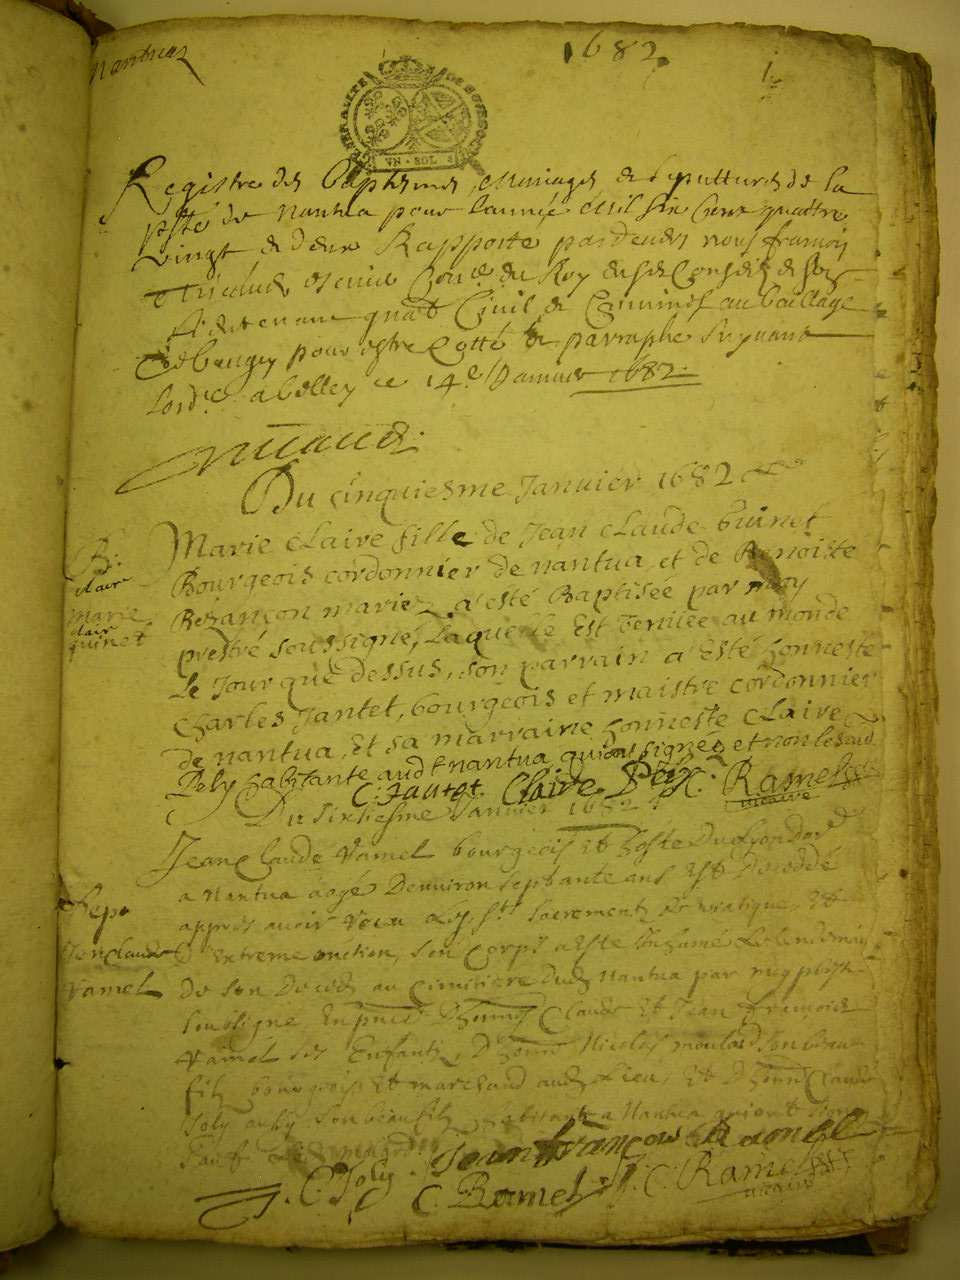 Nantua
1682
1
GENERALITE DE BOURGOGNE
VN · SOL
Registre des Baptesmes, Mariages et sepultures de la
psse de Nantua pour l'année Mil six Cens quattre
vingt et deux Rapporte pardevant nous francois
escuier Conler du Roy en ses Conseils et son
Lieutenant Civil et Criminel au bailliage
de beugey pour estre Cotté et paraphe suyuant
lord.ce a belley ce 14.e Januier 1682.
Du cinquiesme Januier 1682
Marie claire fille de Jean claude Guinet
Bourgeois cordonnier de nantua, et de Benoiste
Bezançon mariez, a esté Baptisée par moy
prestre soussigné, laquelle est Venüe au monde
le Jour que dessus, son parrain a esté honneste
charles Jantet, bourgeois et maistre cordonnier
de nantua, et sa marraine honneste claire
Pely habitante aud.t nantua, qui ont signéz et non lesaud.
B.
claire
marie
clair
guinet
C. Jantet. Claire Ramel
vicaire
Du Sixiesme Januier 1682
Jean Claude Ramel bourgeois et hoste du
a Nantua aagé denuiron septante ans est decedé
appres auoir receu les sts sacrements de viatique, et
extreme onction, son corps a este inhumé le lendemain
de son deces au cimitiere dud. Nantua par moy pbstre
soussigne en pnce d'honn. Claude et Jean francois
Ramel ses enfants, d'honn. Nicolas son beau
filz bourgeois et marchand aud. lieu, et d'honn. Claude
Joly aussy son beau filz habitant a Nantua qui ont signe
sauf
Sep.
Jean Claude
Ramel
Jean françois Ramel
J. C. Joly. C. Ramel J. C. Ramel
vicaire